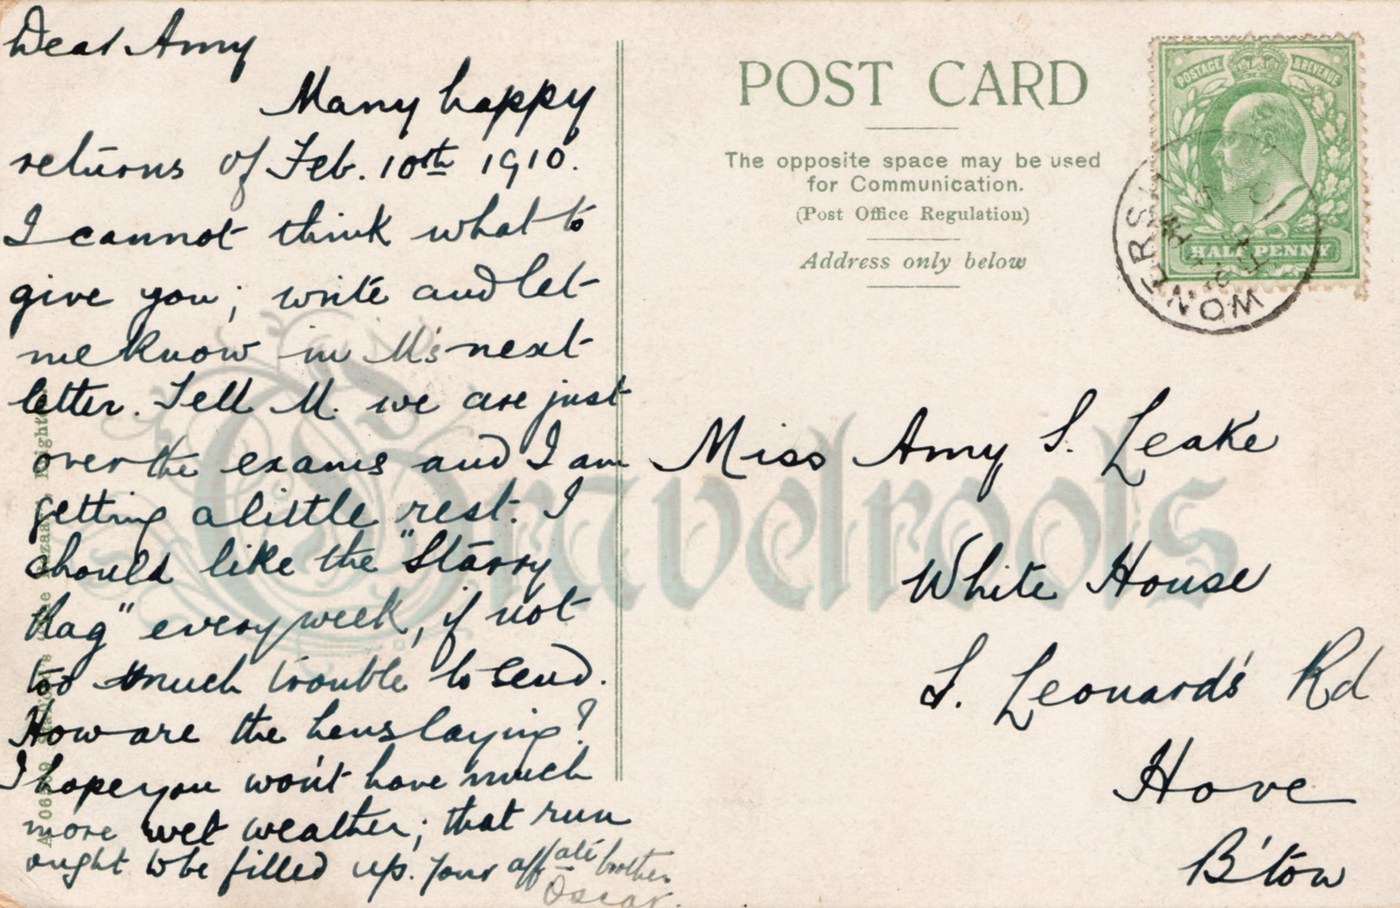 Dear Amy
Many happy
returns of Feb. 10th 1910.
I cannot think what to
give you; write and let
me know in M's next
letter. Tell M. we are just
over the exams and I am
getting a little rest. I
should like the "Starry
flag" every week, if not
too much trouble to send.
How are the hens laying?
I hope you won't have much
more wet weather; that run
ought to be filled up. Your affate brother
Oscar.
POST CARD
The opposite space may be used
for Communication.
(Post Office Regulation)
Address only below
POSTAGE & REVENUE
HALFPENNY
WONERSH
Miss Amy S. Leake
White House
S. Leonard's Rd
Hove
B'ton
Gravelroots